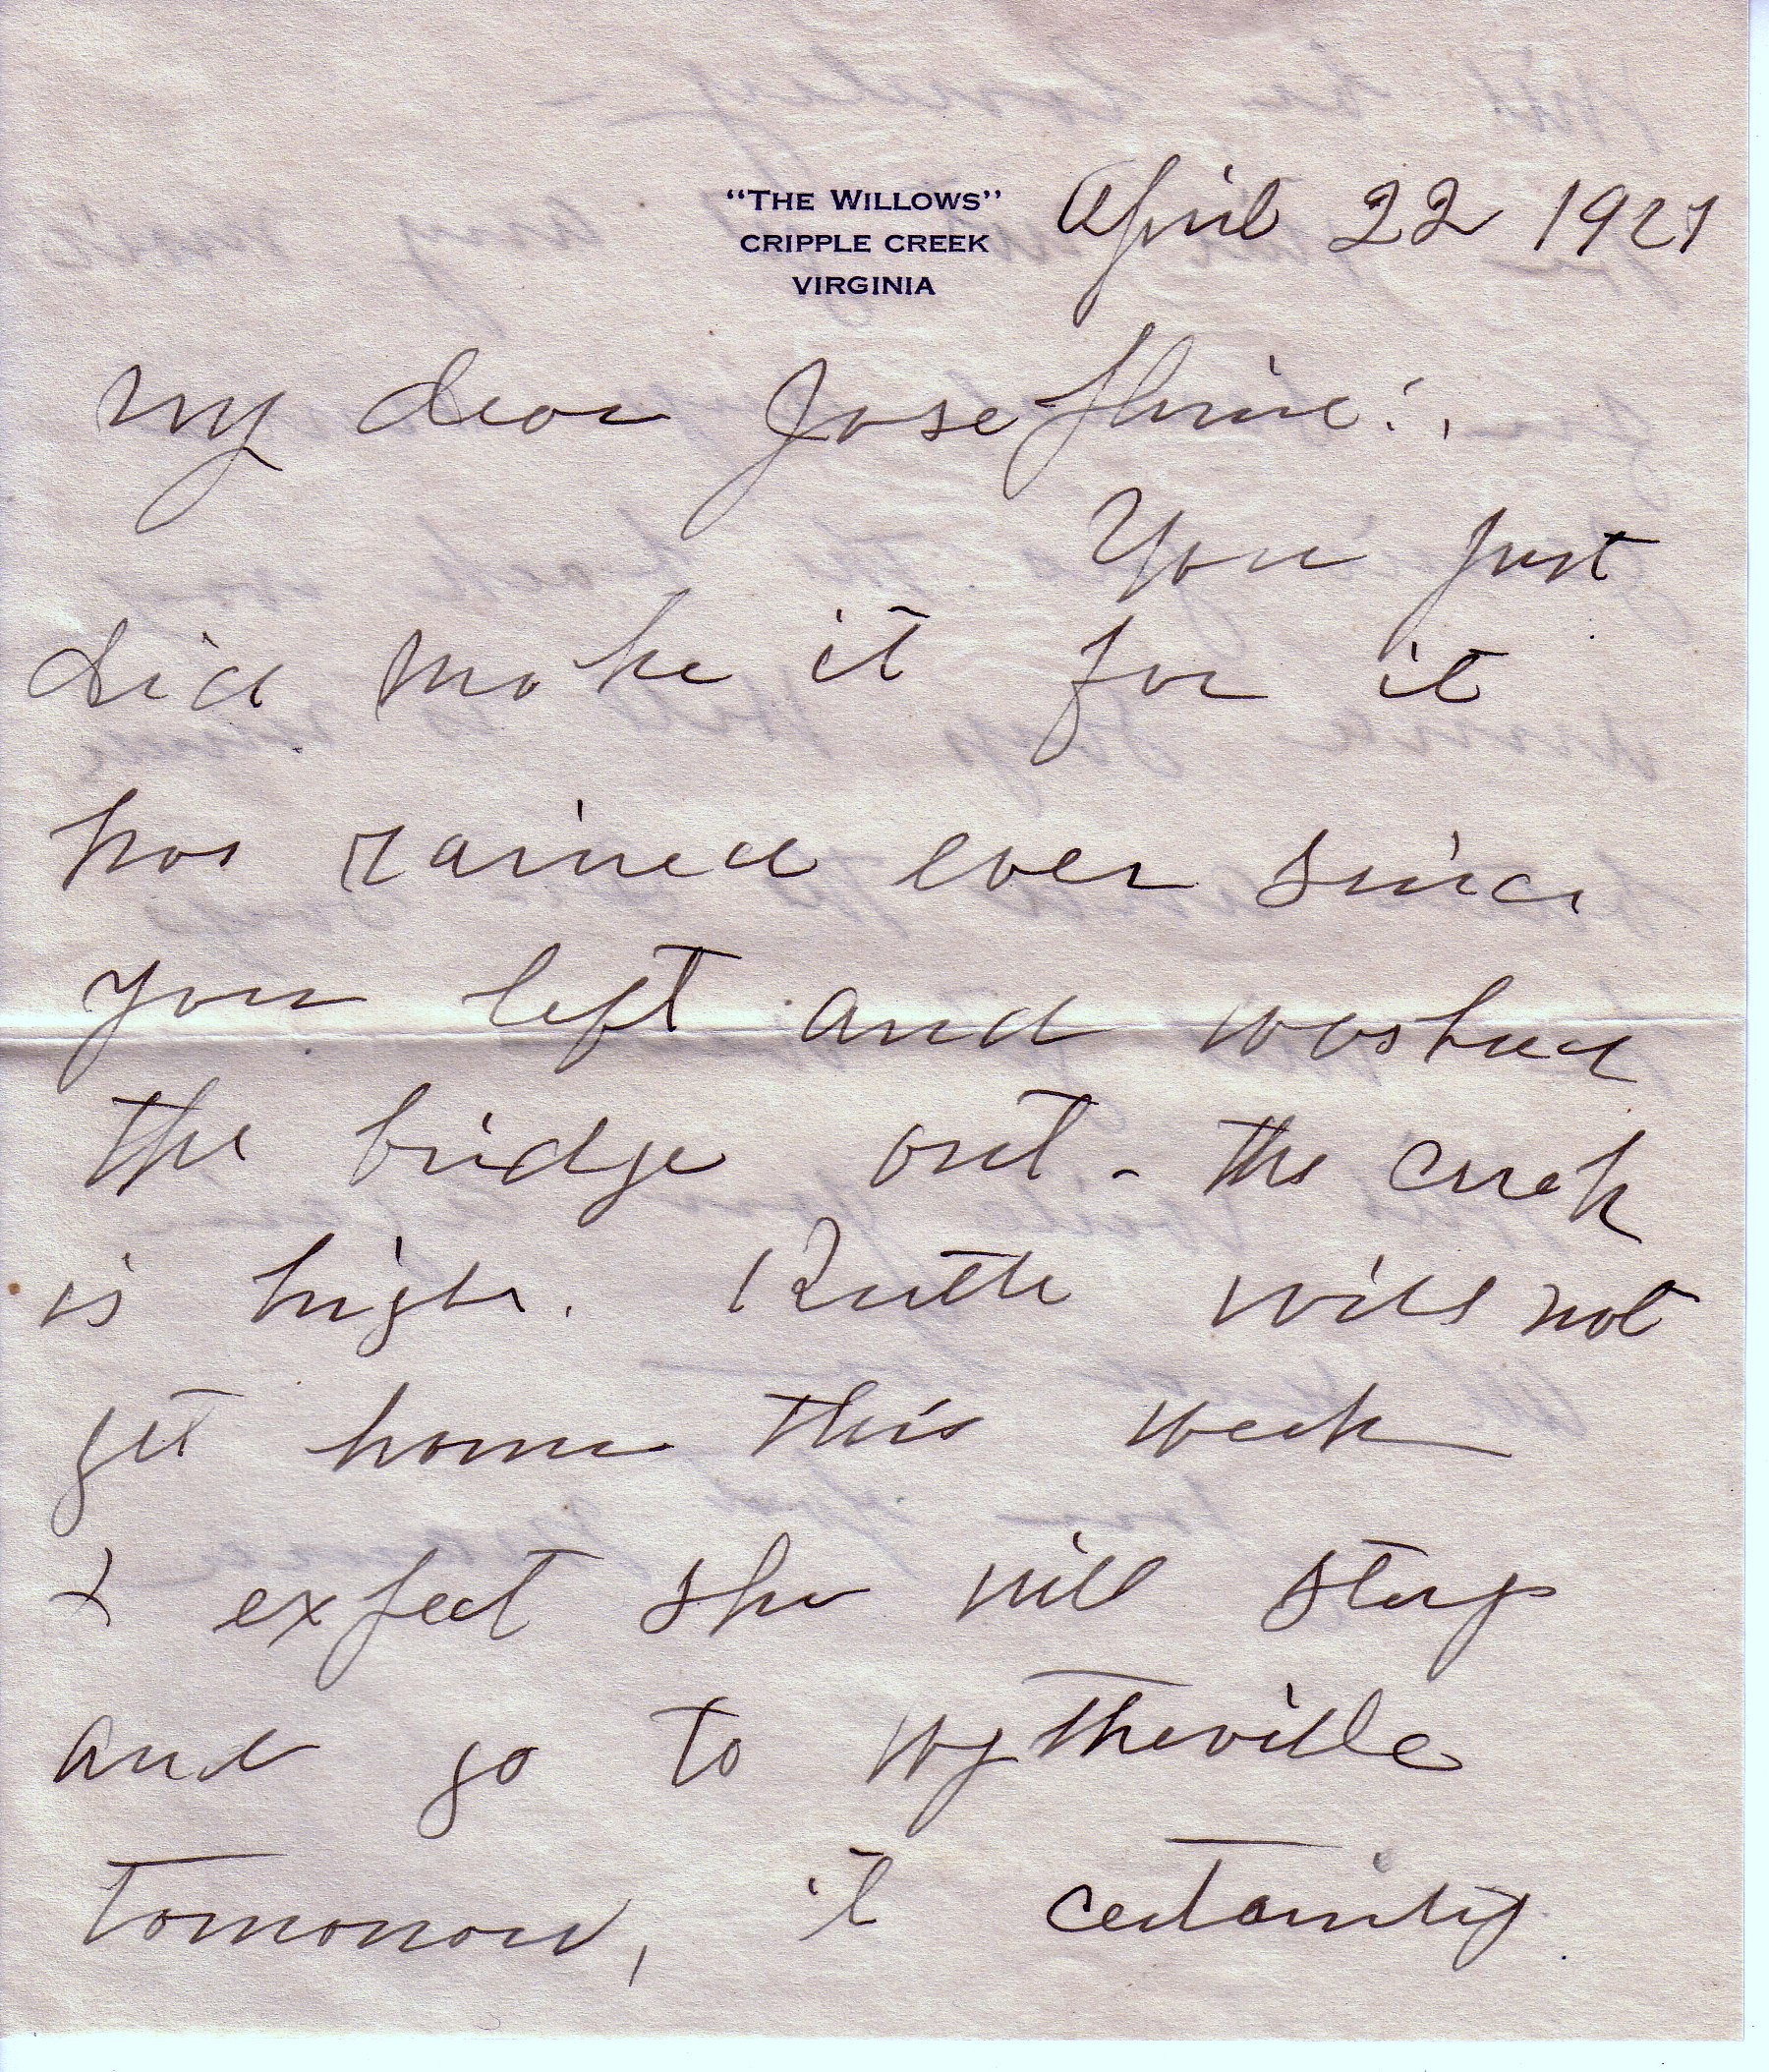 "THE WILLOWS"
CRIPPLE CREEK
VIRGINIA
April 22 1921
My dear Josephine:.
You just
did make it for it
has rained ever since
you left and washed
the bridge out - the creek
is high. Ruth will not
get home this week
I expect she will stay
and go to Wytheville
tomorrow, it certainly